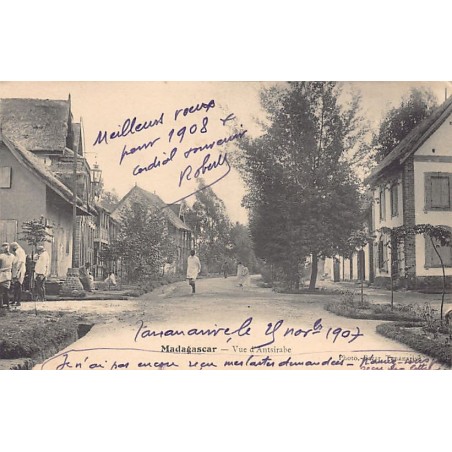 Meilleurs vœux
pour 1908 &
cordial souvenir
Robert
Tananarive, le 25 novbre 1907
Madagascar — Vue d'Antsirabe
Photo.
Je n'ai pas encore reçu mes cartes demandées —